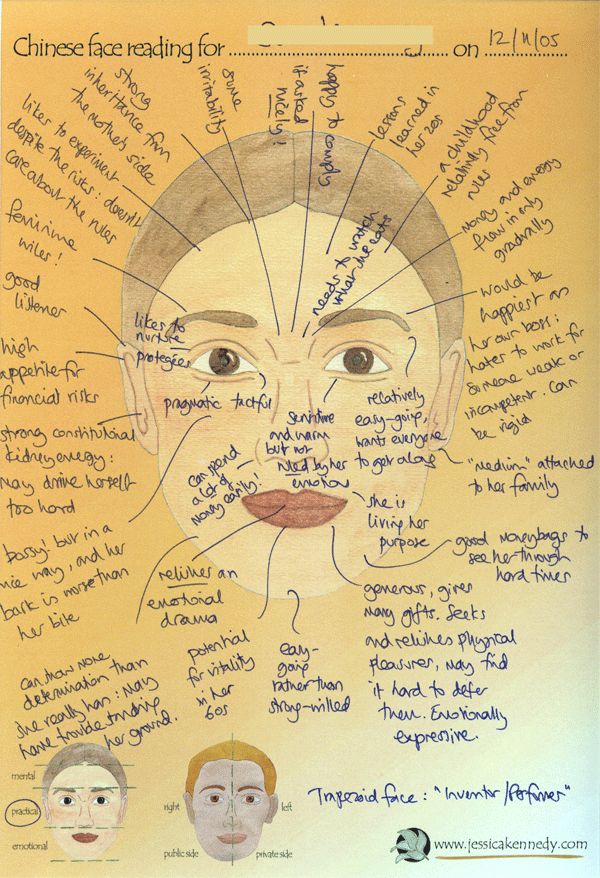 Chinese face reading for
on 12/11/05
strong
inheritance from
the mother's side
some
irritability
happy to comply
if asked
nicely!
lessons
learned in
her 20s
a childhood
relatively free from
rules
likes to experiment
despite the risks: doesn't
care about the rules
needs to watch
what she eats
money and energy
flow in only
gradually
feminine
wiles!
good
listener
likes to
nurture
protegées
would be
happiest as
her own boss:
hates to work for
someone weak or
incompetent. Can
be rigid
high
appetite for
financial risks
pragmatic
tactful
sensitive
and warm
but not
ruled by her
emotion
relatively
easy-going,
wants everyone
to get along
strong constitutional
kidney energy:
may drive herself
too hard
can spend
a lot of
money easily!
"medium" attached
to her family
she is
living her
purpose
bossy! but in a
nice way, and her
bark is worse than
her bite
good moneybags to
see her through
hard times
relishes an
emotional
drama
generous, gives
many gifts. Seeks
and relishes physical
pleasures, may find
it hard to defer
them. Emotionally
expressive.
can show more
determination than
she really has: may
have trouble standing
her ground.
potential
for vitality
in her
60s
easy-
going
rather than
strong-willed
mental
practical
emotional
right
left
public side
private side
Trapezoid face: "Inventor/Performer"
www.jessicakennedy.com